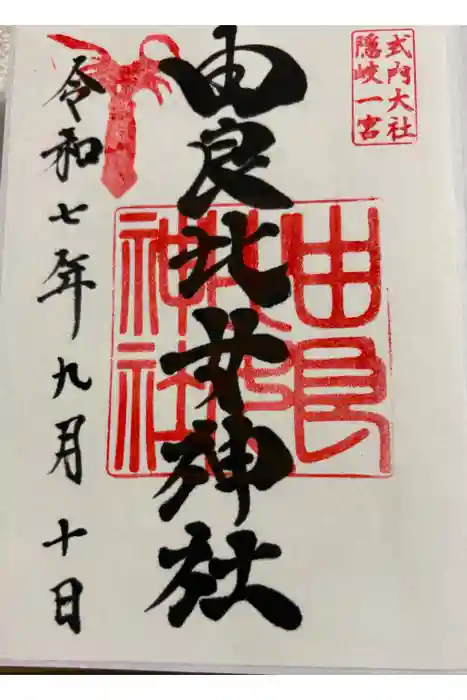 式内大社
隠岐一宮
由良比女神社
由良比女神社
令和七年九月十日